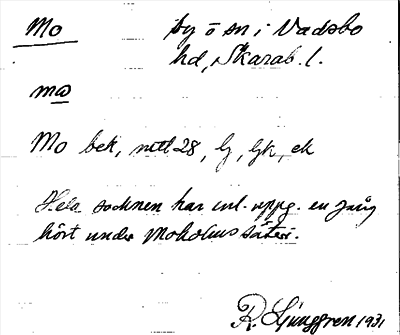 Mo by o sn i Vadsbo
hd, Skarab. l.
mω
Mo bek, mtl 28, lj, ljk, ek
Hela socknen har enl. uppg. en gång
hört under Moholms säteri.
R. Ljunggren 1931